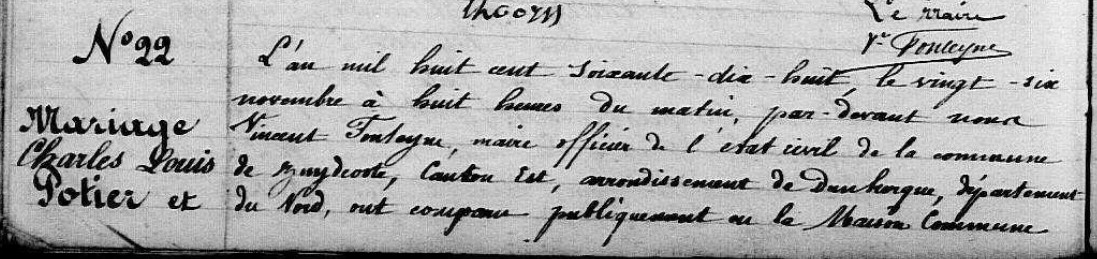 Le Maire
Vt Fonteyne
No 22
L'an mil huit cent soixante-dix-huit, le vingt-six
novembre à huit heures du matin, par-devant nous
Mariage
Vincent Fonteyne, maire officier de l'état civil de la commune
Charles Louis
de Zuydcoote, Canton Est, arrondissement de Dunkerque, département
Potier et
du Nord, ont comparu publiquement en la Maison Commune